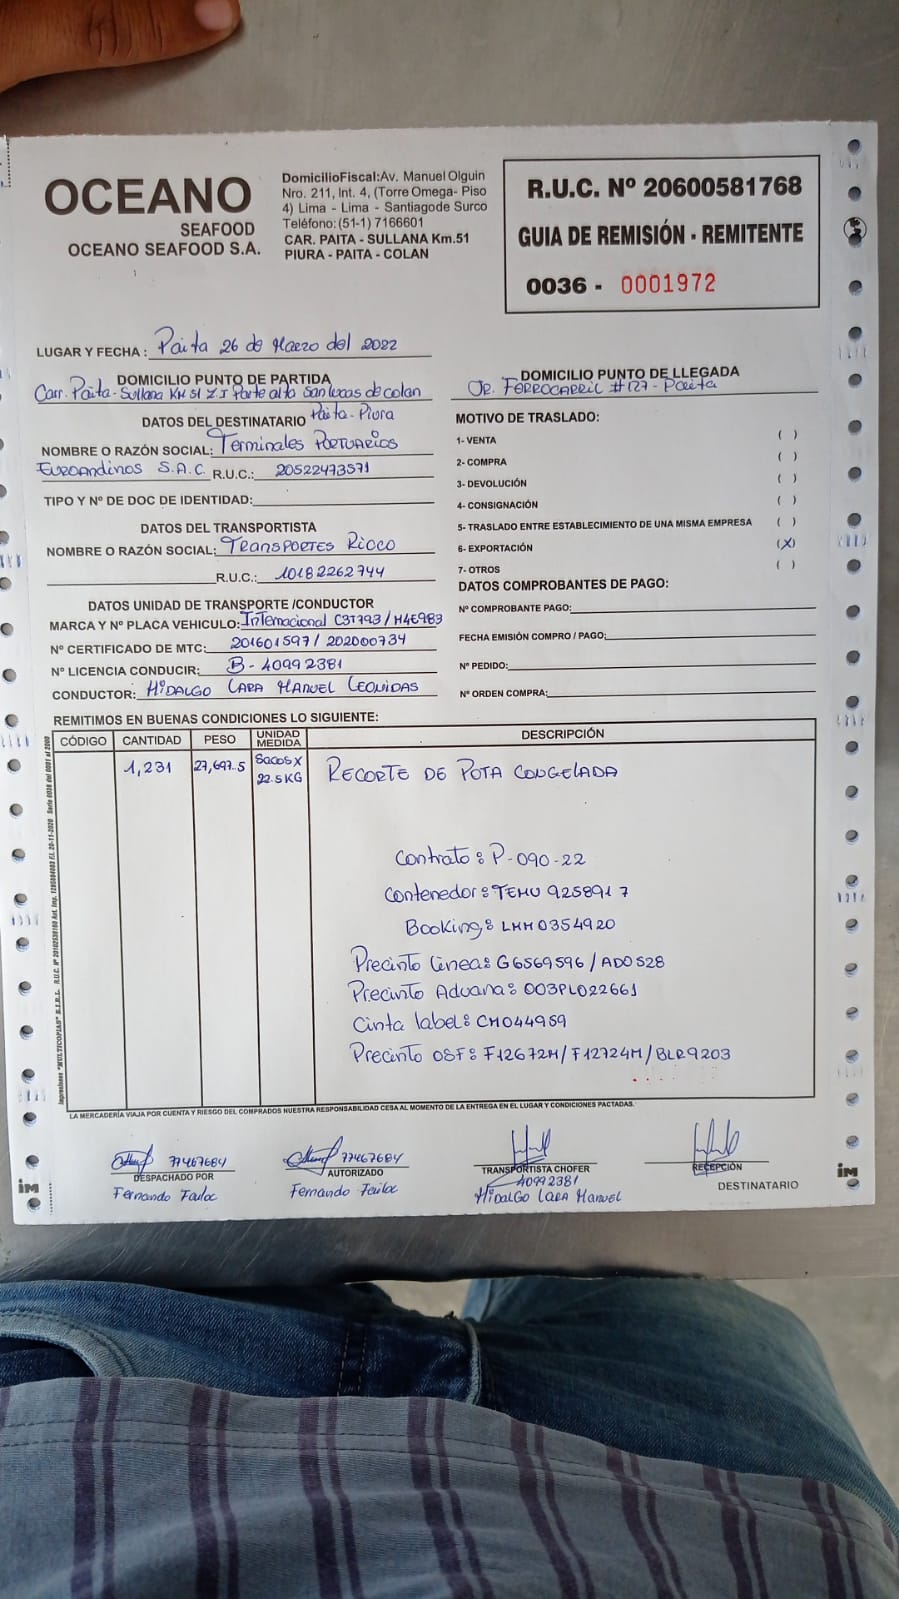 OCEANO
SEAFOOD
OCEANO SEAFOOD S.A.
DomicilioFiscal:Av. Manuel Olguin
Nro. 211, Int. 4, (Torre Omega- Piso
4) Lima - Lima - Santiagode Surco
Teléfono: (51-1) 7166601
CAR. PAITA - SULLANA Km.51
PIURA - PAITA - COLAN
R.U.C. Nº 20600581768
GUIA DE REMISIÓN - REMITENTE
0036 - 0001972
LUGAR Y FECHA : Paita 26 de Marzo del 2022
DOMICILIO PUNTO DE PARTIDA
Carr. Paita-Sullana KM 51 Z.I Parte alta San Lucas de colan
Paita-Piura
DOMICILIO PUNTO DE LLEGADA
Jr. FERROCARRIL #127- Paita
DATOS DEL DESTINATARIO
NOMBRE O RAZÓN SOCIAL: Terminales PORTUARIOS
EUROANDINOS S.A.C. R.U.C.: 20522473571
TIPO Y Nº DE DOC DE IDENTIDAD:
DATOS DEL TRANSPORTISTA
NOMBRE O RAZÓN SOCIAL: TRANSPORTES RICCO
R.U.C.: 10182262744
DATOS UNIDAD DE TRANSPORTE /CONDUCTOR
MARCA Y Nº PLACA VEHICULO: Internacional C3T793/M4E983
Nº CERTIFICADO DE MTC: 201601597/ 202000734
Nº LICENCIA CONDUCIR: B-40992381
CONDUCTOR: HIDALGO LARA MANUEL LEONIDAS
MOTIVO DE TRASLADO:
1- VENTA ( )
2- COMPRA ( )
3- DEVOLUCIÓN ( )
4- CONSIGNACIÓN ( )
5- TRASLADO ENTRE ESTABLECIMIENTO DE UNA MISMA EMPRESA ( )
6- EXPORTACIÓN (X)
7- OTROS ( )
DATOS COMPROBANTES DE PAGO:
Nº COMPROBANTE PAGO:
FECHA EMISIÓN COMPRO / PAGO:
Nº PEDIDO:
Nº ORDEN COMPRA:
REMITIMOS EN BUENAS CONDICIONES LO SIGUIENTE:
CÓDIGO CANTIDAD PESO UNIDAD MEDIDA DESCRIPCIÓN
1,231 27,697.5 Sacos X 22.5KG RECORTE DE POTA CONGELADA
Contrato: P-090-22
Contenedor: TEMU 925891 7
Booking: LMM0354920
Precinto Linea: G6569596/AD0528
Precinto Aduana: 003PL022661
Cinta label: CM044959
Precinto OSF: F12672M/F12724M/BLR9203
LA MERCADERÍA VIAJA POR CUENTA Y RIESGO DEL COMPRADOS NUESTRA RESPONSABILIDAD CESA AL MOMENTO DE LA ENTREGA EN EL LUGAR Y CONDICIONES PACTADAS.
77467684
DESPACHADO POR
Fernando Failoc
77467684
AUTORIZADO
Fernando Failoc
TRANSPORTISTA CHOFER
40992381
HIDALGO LARA MANUEL
RECEPCIÓN
DESTINATARIO
iM
iM